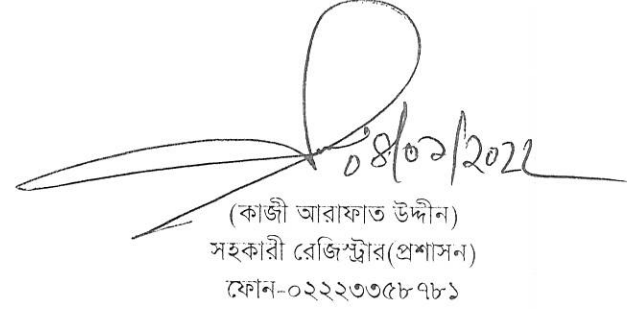 ০৪/০১/২০২২
(কাজী আরাফাত উদ্দীন)
সহকারী রেজিস্ট্রার(প্রশাসন)
ফোন-০২২২৩৩৫৮৭৮১